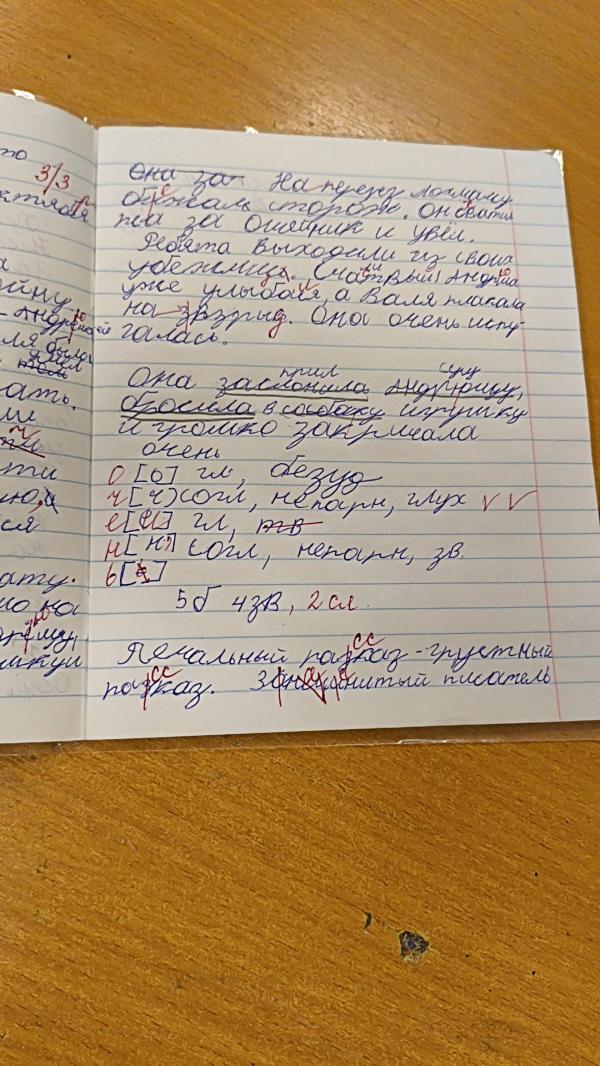 то
3/3
ктября
а
ойну.
- Андрюшей
ля была
ать.
ши
ти
ся
ату.
мкуи
Она за- На перерез лохмату
бежаль сторож. Он схватил
пса за ошейник и увёл.
Ребята выходили из своих
убежища. Счатвый Андрюша
уже улыбался, а Валя плакала
на взрыд. Она очень испу-
галась.
прил сущ
Она заслонила Андрюшу,
бросила в собаку игрушку
и громко закричала
очень
о [о] гл, безуд
ч [ч] согл, непарн, глух
е [и] гл,
н [н'] согл, непарн, зв.
ь [
5б 4зв, 2 сл.
сс
Печальный разказ - грустный
сс
разказ. писатель